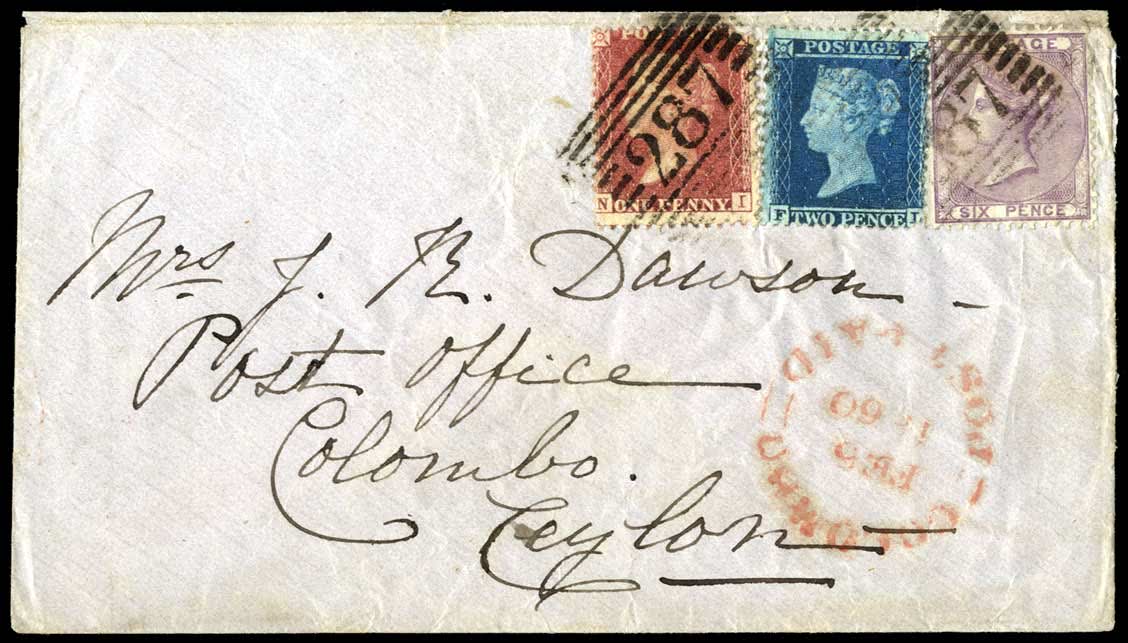 POSTAGE
N ONE PENNY I
287
POSTAGE
F TWO PENCE L
AGE
SIX PENCE
87
Mrs J. R. Dawson -
Post Office
Colombo.
Ceylon
POST PAID
COLOMBO
FE
60